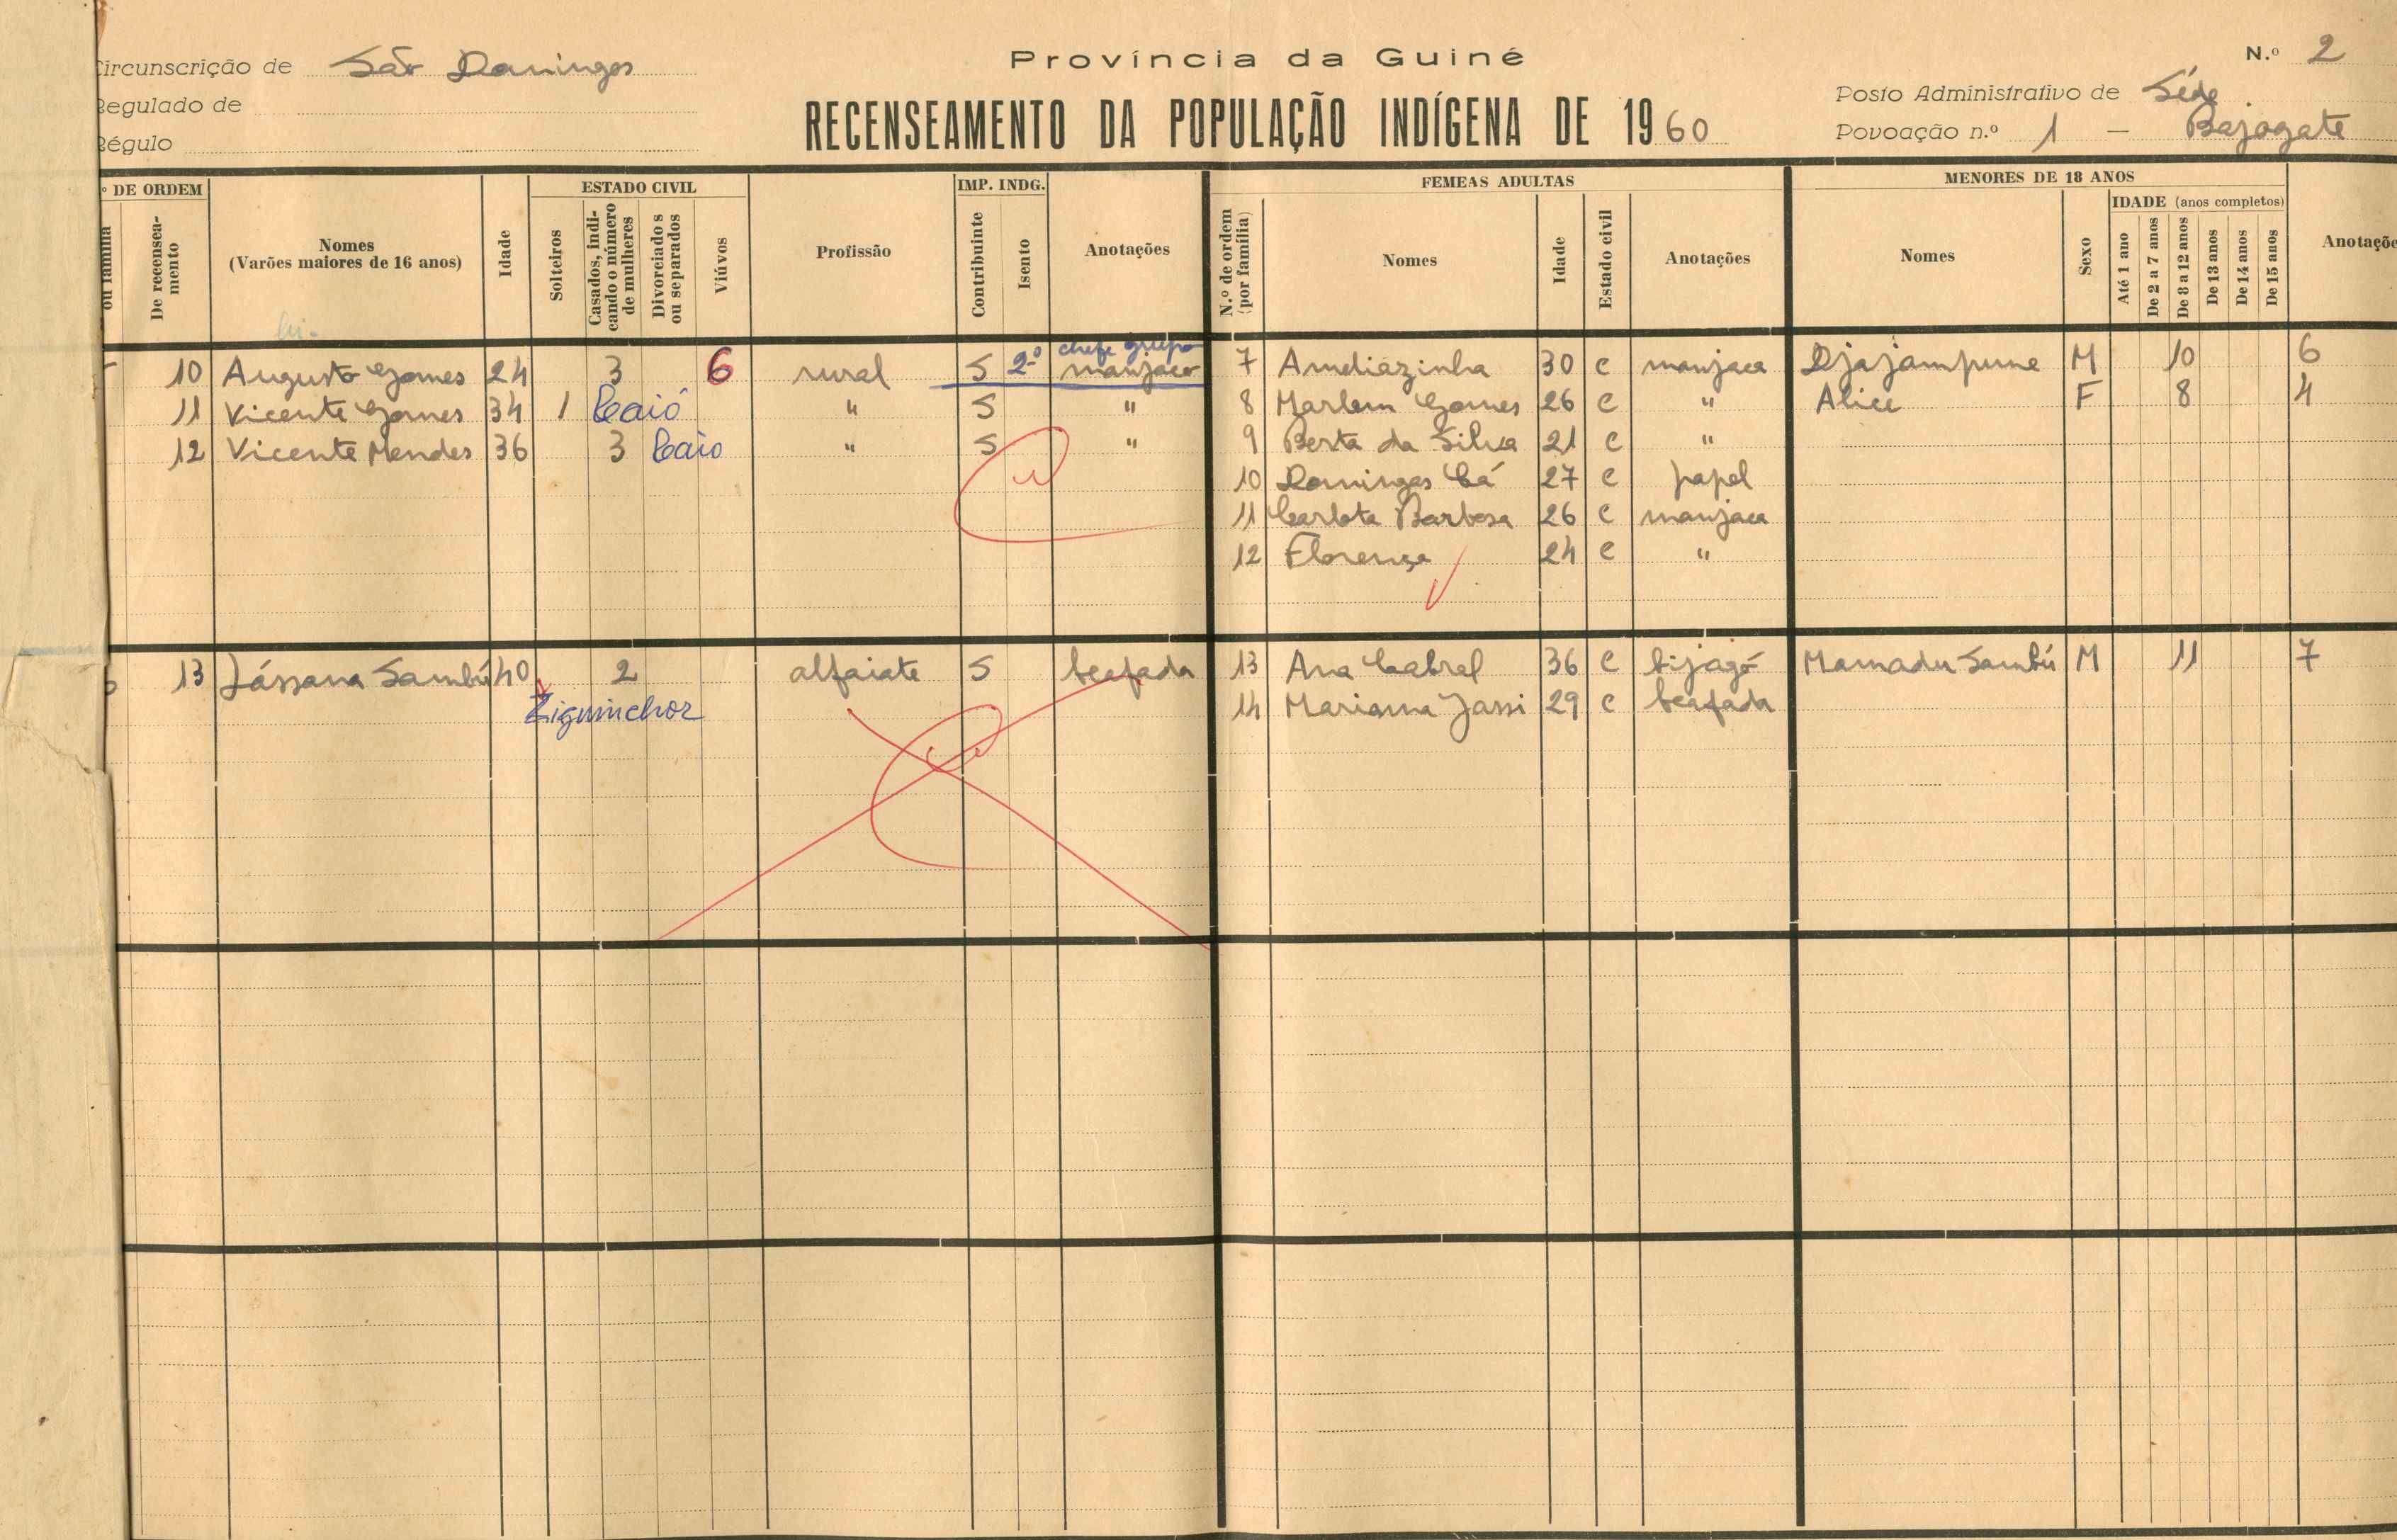 Província da Guiné
Circunscrição de São Domingos
N.º 2
Regulado de
RECENSEAMENTO DA POPULAÇÃO INDÍGENA DE 1960
Posto Administrativo de Séde
Régulo
Povoação n.º 1 — Bajogate
º DE ORDEM
ou família
De recensea-
mento
Nomes
(Varões maiores de 16 anos)
Idade
ESTADO CIVIL
Solteiros
Casados, indi-
cando o número
de mulheres
Divorciados
ou separados
Viúvos
Profissão
IMP. INDG.
Contribuinte
Isento
Anotações
FEMEAS ADULTAS
N.º de ordem
(por família)
Nomes
Idade
Estado civil
Anotações
MENORES DE 18 ANOS
Nomes
Sexo
IDADE (anos completos)
Até 1 ano
De 2 a 7 anos
De 8 a 12 anos
De 13 anos
De 14 anos
De 15 anos
Anotaçõe
chefe grupo
10 Augusto Gomes 24 3 6 rural S 2º manjaco 7 Amdiázinha 30 c manjaca Djajampune M 10 6
11 Vicente Gomes 34 1 Caió " S " 8 Marlem Gomes 26 c " Alice F 8 4
12 Vicente Mendes 36 3 Caió " S " 9 Berta da Silva 21 c "
10 Domingas Cá 27 c papel
11 Carlota Barbosa 26 c manjaca
12 Florença 24 c "
13 Lássana Sambú 40 2 alfaiate S beafada 13 Ana Cabral 36 c bijagó Mamadu Sambú M 11 7
Ziguinchor 14 Mariama Jassi 29 c beafada